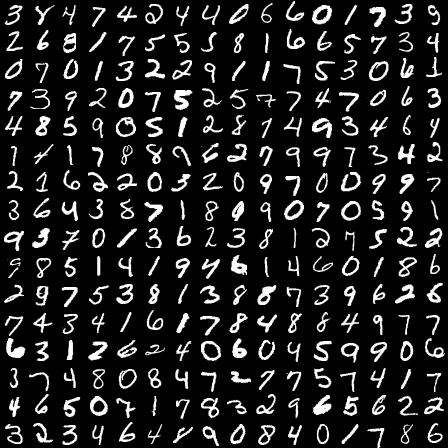 3 8 4 7 4 2 4 4 0 6 6 0 1 7 3 9
2 6 8 1 7 5 5 5 8 1 6 6 5 7 3 4
0 7 0 1 3 2 2 9 1 1 7 5 3 0 6 1
7 3 9 2 0 7 5 2 5 7 7 4 7 0 6 3
4 8 5 9 0 5 1 2 8 7 4 9 3 4 6 4
1 4 1 7 8 8 9 6 2 7 9 9 7 3 4 2
2 1 6 2 2 0 3 2 0 9 7 0 0 9 9 7
3 6 4 3 8 7 1 8 0 9 0 7 0 5 9 1
9 3 7 0 1 3 6 2 3 8 1 2 7 5 2 2
9 8 5 1 4 1 9 4 6 1 4 6 0 1 8 6
2 9 7 5 3 8 1 3 8 8 7 3 9 6 2 6
7 4 3 4 1 6 1 7 8 4 8 8 4 9 7 7
6 3 1 2 6 2 4 0 6 0 4 5 9 9 0 6
3 7 4 8 0 8 4 7 2 7 7 5 7 4 1 7
4 6 5 0 7 1 7 8 3 2 9 6 5 6 2 2
3 2 3 4 6 4 8 9 0 8 4 0 1 7 8 6